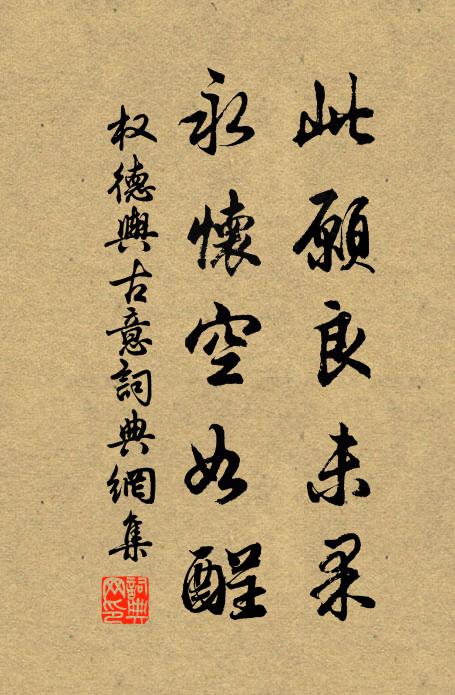 此願良未果
永懷空如酲
权德輿古意詞典網集
詞典网印